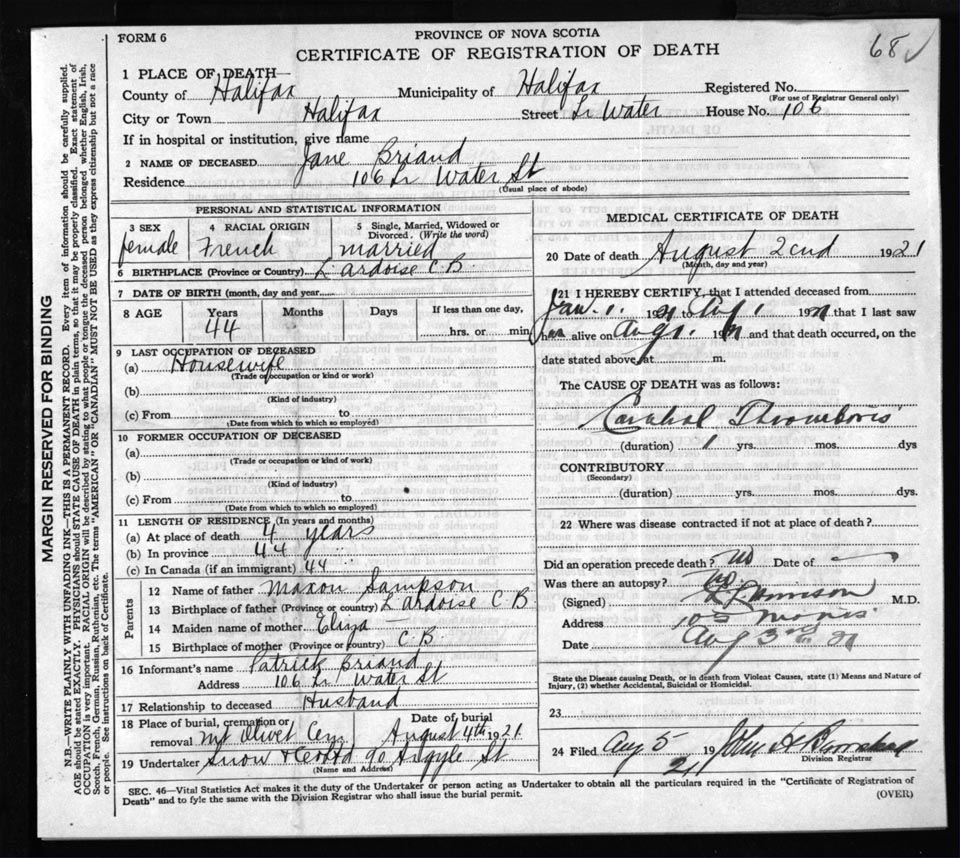 FORM 6
PROVINCE OF NOVA SCOTIA
CERTIFICATE OF REGISTRATION OF DEATH
68
1 PLACE OF DEATH—
County of Halifax Municipality of Halifax Registered No.
(For use of Registrar General only)
City or Town Halifax Street Lr Water House No. 106
If in hospital or institution, give name
2 NAME OF DECEASED Jane Briand
Residence 106 Lr Water St
(Usual place of abode)
PERSONAL AND STATISTICAL INFORMATION
3 SEX female
4 RACIAL ORIGIN French
5 Single, Married, Widowed or Divorced. (Write the word) married
6 BIRTHPLACE (Province or Country) L'ardoise C.B.
7 DATE OF BIRTH (month, day and year)
8 AGE Years 44 Months Days If less than one day, hrs. or min.
9 LAST OCCUPATION OF DECEASED
(a) Housewife
(Trade or occupation or kind or work)
(b)
(Kind of industry)
(c) From to
(Date from which to which so employed)
10 FORMER OCCUPATION OF DECEASED
(a)
(Trade or occupation or kind of work)
(b)
(Kind of industry)
(c) From to
(Date from which to which so employed)
11 LENGTH OF RESIDENCE (In years and months)
(a) At place of death 4 years
(b) In province 44 "
(c) In Canada (if an immigrant) 44 "
Parents
12 Name of father Maxon Sampson
13 Birthplace of father (Province or country) L'ardoise C B
14 Maiden name of mother Eliza —
15 Birthplace of mother (Province or country) C.B.
16 Informant's name Patrick Briand
Address 106 Lr Water St
17 Relationship to deceased Husband
18 Place of burial, cremation or removal Mt Olivet Cem Date of burial August 4th 1921
19 Undertaker Snow & Co Ltd 90 Argyle St
(Name and Address)
MEDICAL CERTIFICATE OF DEATH
20 Date of death August 22nd 1921
(Month, day and year)
21 I HEREBY CERTIFY, that I attended deceased from
Jan. 1. 1921 to Aug 1 1921 that I last saw
her alive on Aug 1. 1921 and that death occurred, on the
date stated above, at m.
The CAUSE OF DEATH was as follows:
Cerebral Thrombosis
(duration) 1 yrs. mos. dys
CONTRIBUTORY
(Secondary)
(duration) yrs. mos. dys.
22 Where was disease contracted if not at place of death?
Did an operation precede death? No Date of —
Was there an autopsy? No
(Signed) M.D.
Address 105 Morris
Date Aug 3rd 21
State the Disease causing Death, or in death from Violent Causes, state (1) Means and Nature of
Injury, (2) whether Accidental, Suicidal or Homicidal.
23
24 Filed Aug 5 1921 John A
Division Registrar
SEC. 46—Vital Statistics Act makes it the duty of the Undertaker or person acting as Undertaker to obtain all the particulars required in the "Certificate of Registration of
Death" and to fyle the same with the Division Registrar who shall issue the burial permit.
(OVER)
MARGIN RESERVED FOR BINDING
N.B.—WRITE PLAINLY WITH UNFADING INK—THIS IS A PERMANENT RECORD. Every item of information should be carefully supplied.
AGE should be stated EXACTLY. PHYSICIANS should STATE CAUSE OF DEATH in plain terms, so that it may be properly classified. Exact statement of
OCCUPATION is very important. RACIAL ORIGIN will be described by stating to what people or tongue the deceased person belonged whether English, Irish,
Scotch, French, German, Russian, Ruthenian, etc. The terms "AMERICAN" OR "CANADIAN" MUST NOT BE USED as they express citizenship but not a race
or people. See instructions on back of Certificate.